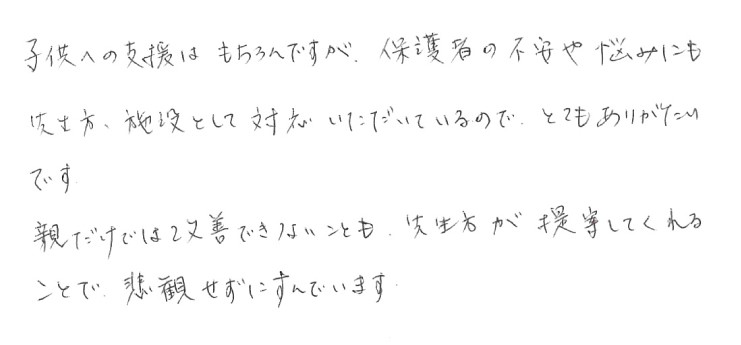 子供への支援はもちろんですが、保護者の不安や悩みにも
先生方、施設として対応いただいているので、とてもありがたい
です。
親だけでは改善できないことも、先生方が提案してくれる
ことで、悲観せずにすんでいます。